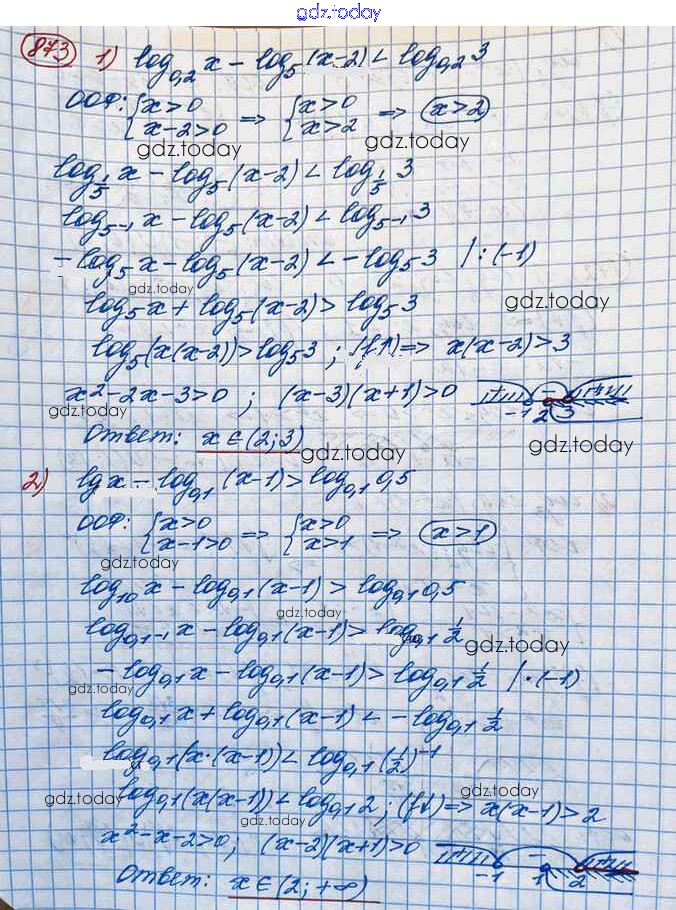 gdz.today
873 1) log₀,₂ x − log₅ (x−2) < log₀,₂ 3
ООФ: { x>0 x−2>0 => { x>0 x>2 => x>2
gdz.today gdz.today
log_{1/5} x − log₅ (x−2) < log_{1/5} 3
log_{5⁻¹} x − log₅ (x−2) < log_{5⁻¹} 3
− log₅ x − log₅ (x−2) < − log₅ 3 | : (−1)
gdz.today
log₅ x + log₅ (x−2) > log₅ 3 gdz.today
log₅ (x(x−2)) > log₅ 3 ; (f↑) => x(x−2) > 3
x² − 2x − 3 > 0 ; (x−3)(x+1) > 0 + − + −1 2 3
gdz.today
Ответ: x ∈ (2; 3)
gdz.today gdz.today
2) lg x − log₀,₁ (x−1) > log₀,₁ 0,5
ООФ: { x>0 x−1>0 => { x>0 x>1 => x>1
gdz.today
log₁₀ x − log₀,₁ (x−1) > log₀,₁ 0,5
gdz.today
log_{0,1⁻¹} x − log₀,₁ (x−1) > log₀,₁ 1/2
gdz.today
− log₀,₁ x − log₀,₁ (x−1) > log₀,₁ 1/2 | · (−1)
gdz.today
log₀,₁ x + log₀,₁ (x−1) < − log₀,₁ 1/2
log₀,₁ (x·(x−1)) < log₀,₁ (1/2)⁻¹
gdz.today
log₀,₁ (x(x−1)) < log₀,₁ 2 ; (f↓) => x(x−1) > 2
gdz.today gdz.today
x² − x − 2 > 0 ; (x−2)(x+1) > 0 + − + −1 1 2
Ответ: x ∈ (2; +∞)
gdz.today